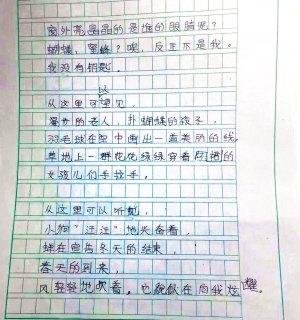 窗外亮晶晶的是谁的眼睛呢?
蝴蝶,蜜蜂?嗯,反正不是我。
我没有钥匙。
从这里可以望见,
老人,扑蝴蝶的孩子,
羽毛球在空中画出一盖美丽的线。
草地上一群花花绿绿穿着的
女孩儿们手拉手。
从这里可以听见,
小狗"汪汪"地兴奋着,
蝉在宣告冬天的结束,
春天的到来,
风轻轻地吹着,也貌似在向我炫耀。